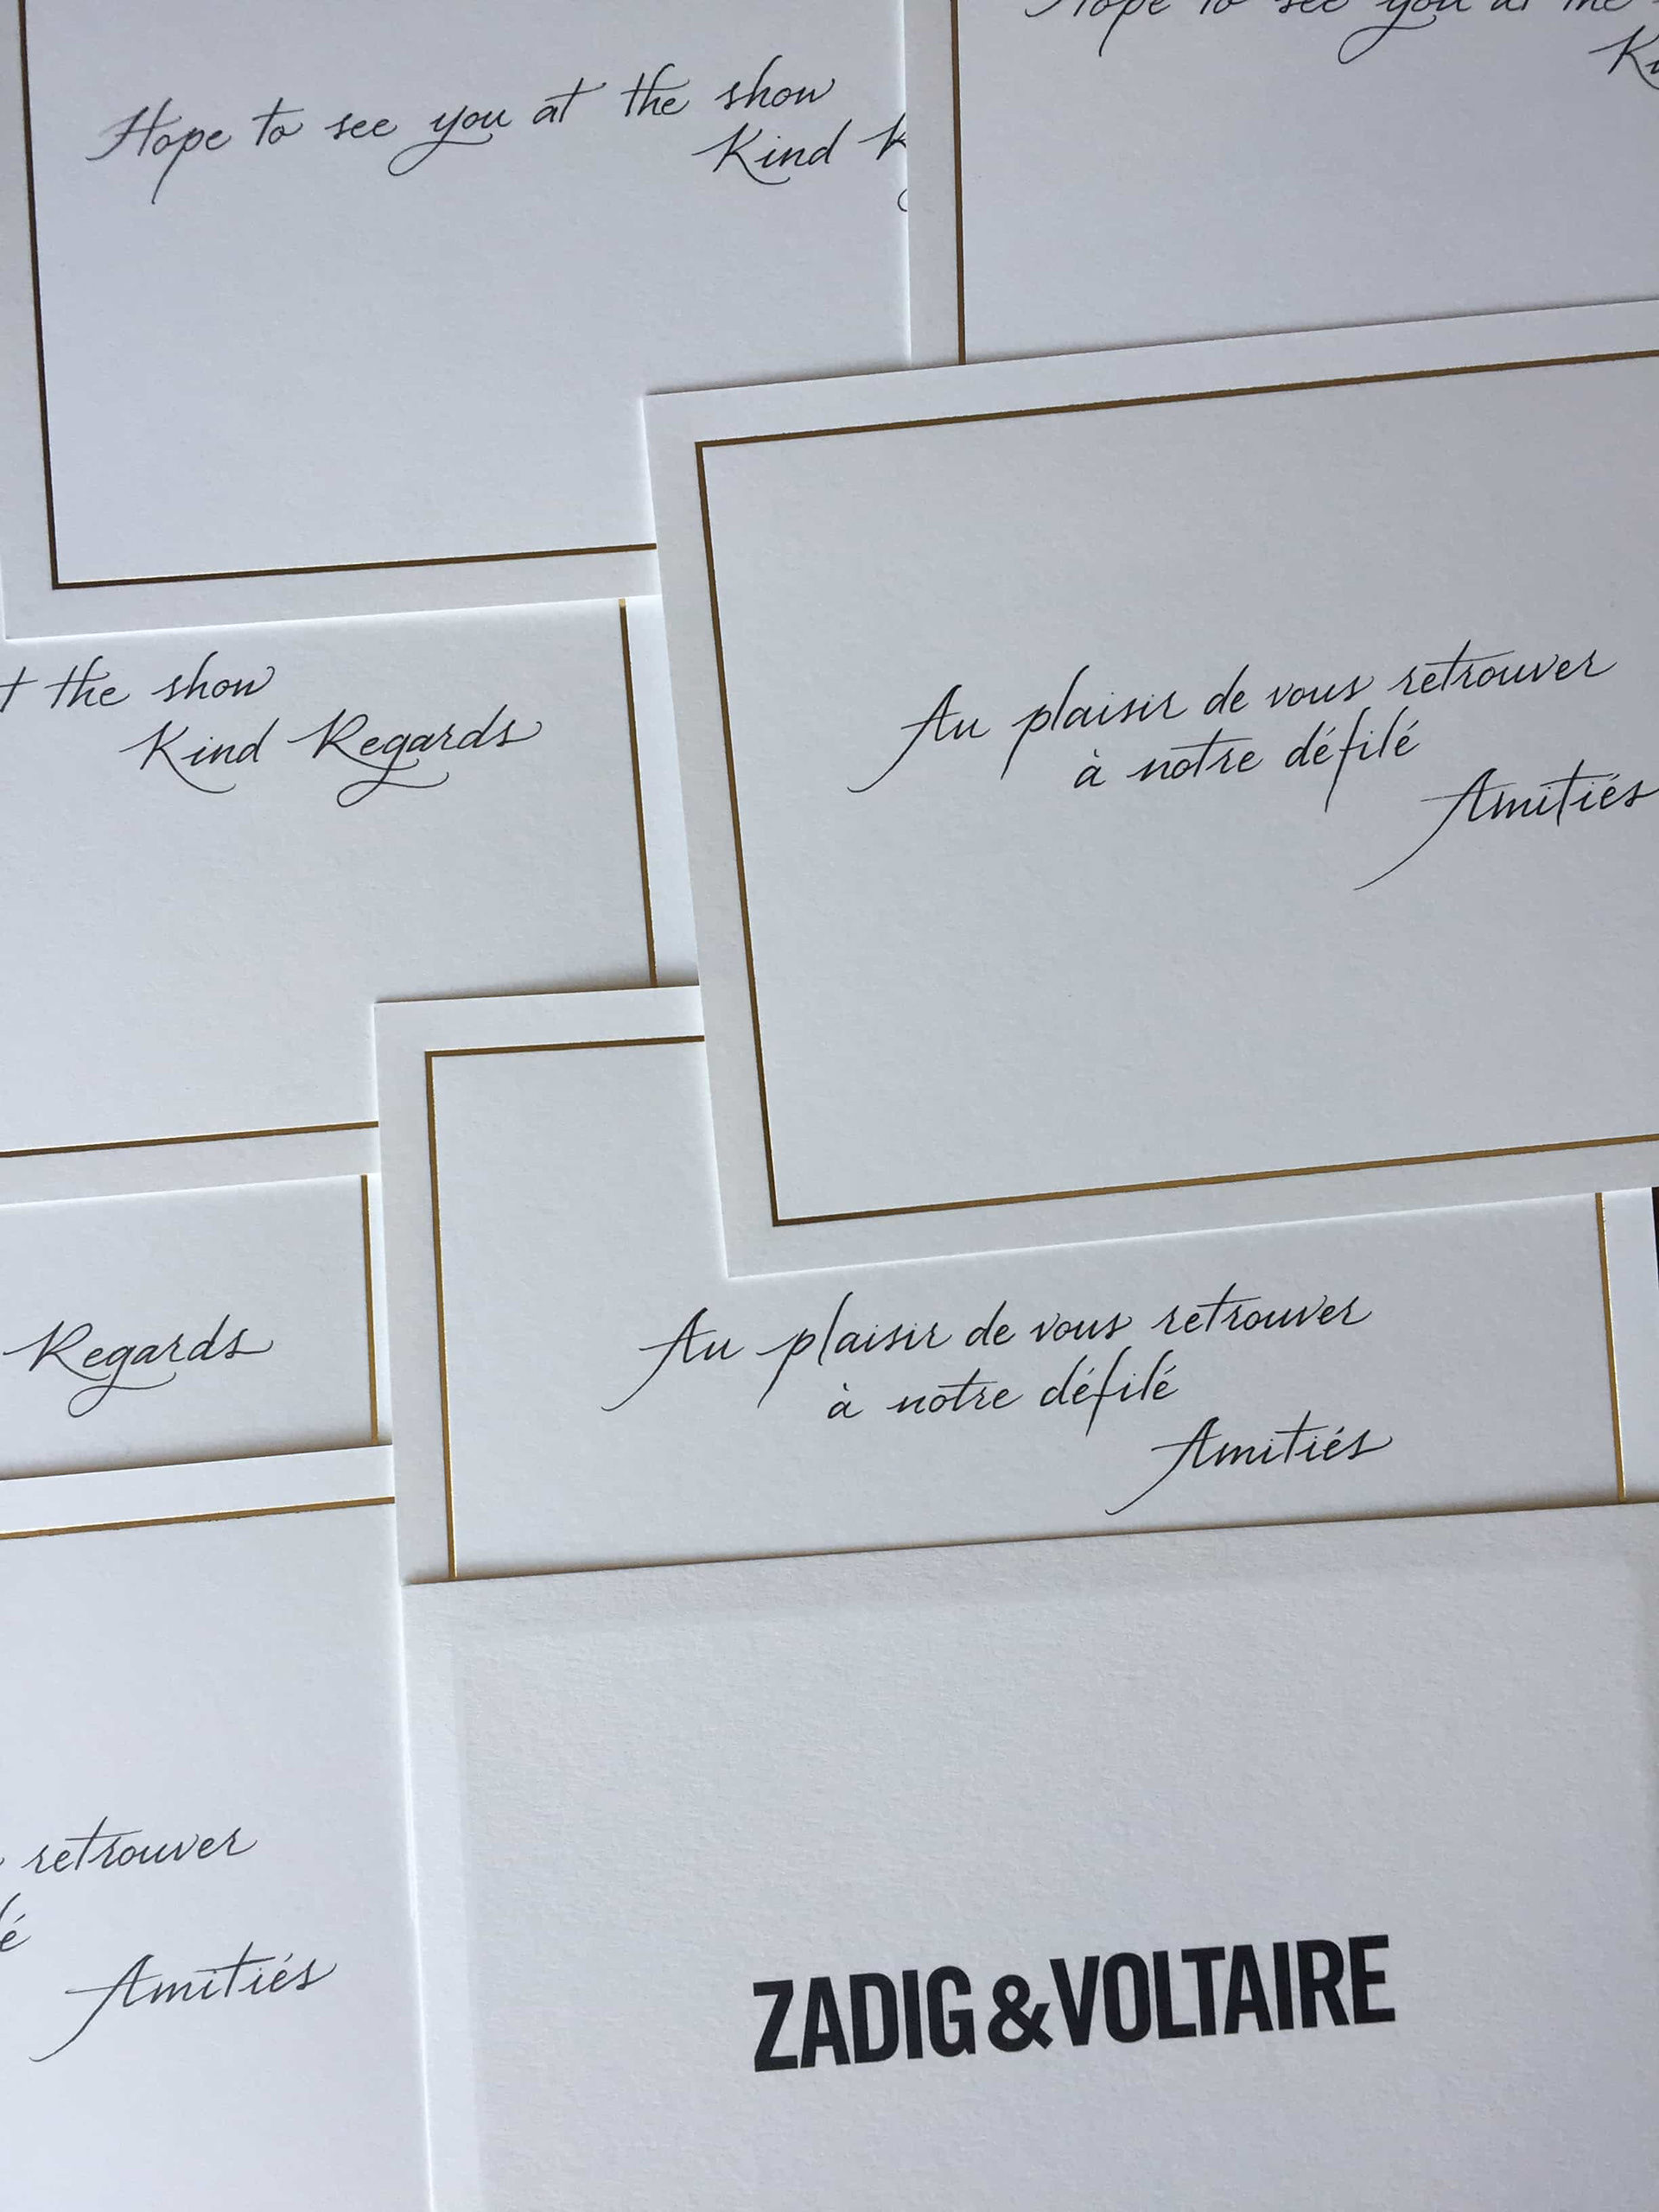 Hope to see you at the
Hope to see you at the show
Kind
the show
Kind Regards
Au plaisir de vous retrouver
à notre défilé
Amitiés
Regards
Au plaisir de vous retrouver
à notre défilé
Amitiés
retrouver
Amitiés
ZADIG & VOLTAIRE